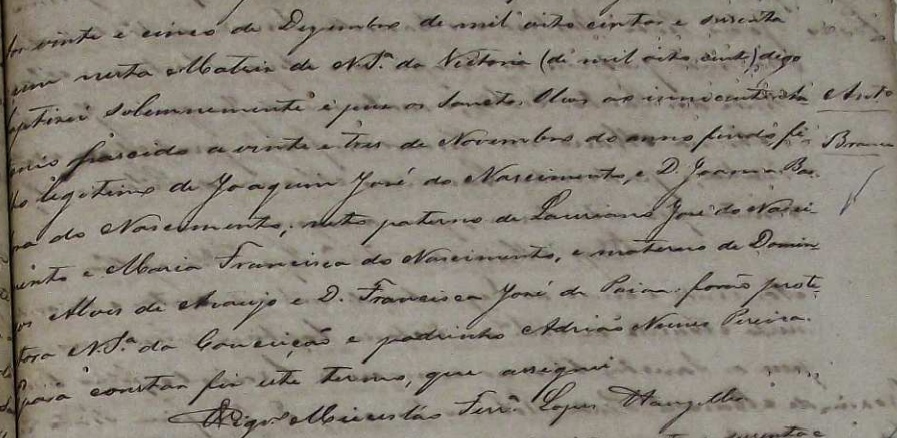 vinte e cinco de Dezembro de mil oito centos e secenta
um nesta Matriz de N. Sª. da Victoria (de mil oito cent) digo
baptizei solemnemente e puz os Sanctos Oleos ao innocente
nio nascido a vinte e tres de Novembro do anno findo fi
legitimo de Joaquim José do Nascimento, e D. Joanna
do Nascimento, neto paterno de Lauriano José do Nasci
mento e Maria Francisca do Nascimento, e materno de Domin
Alves de Araujo e D. Francisca José de Paiva: forão prote
tora N. Sª. da Conceição e padrinho Adrião Nunes Pereira.
para constar fiz este termo, que assignei
Vigrº. Ferrª. Lopes
Anto
Branco